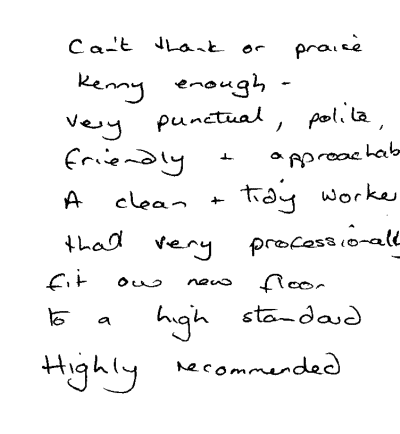 Can't thank or praise
Kenny enough -
very punctual, polite,
friendly + approachab
A clean + tidy worke
that very professionally
fit our new floor
to a high standard
Highly recommended